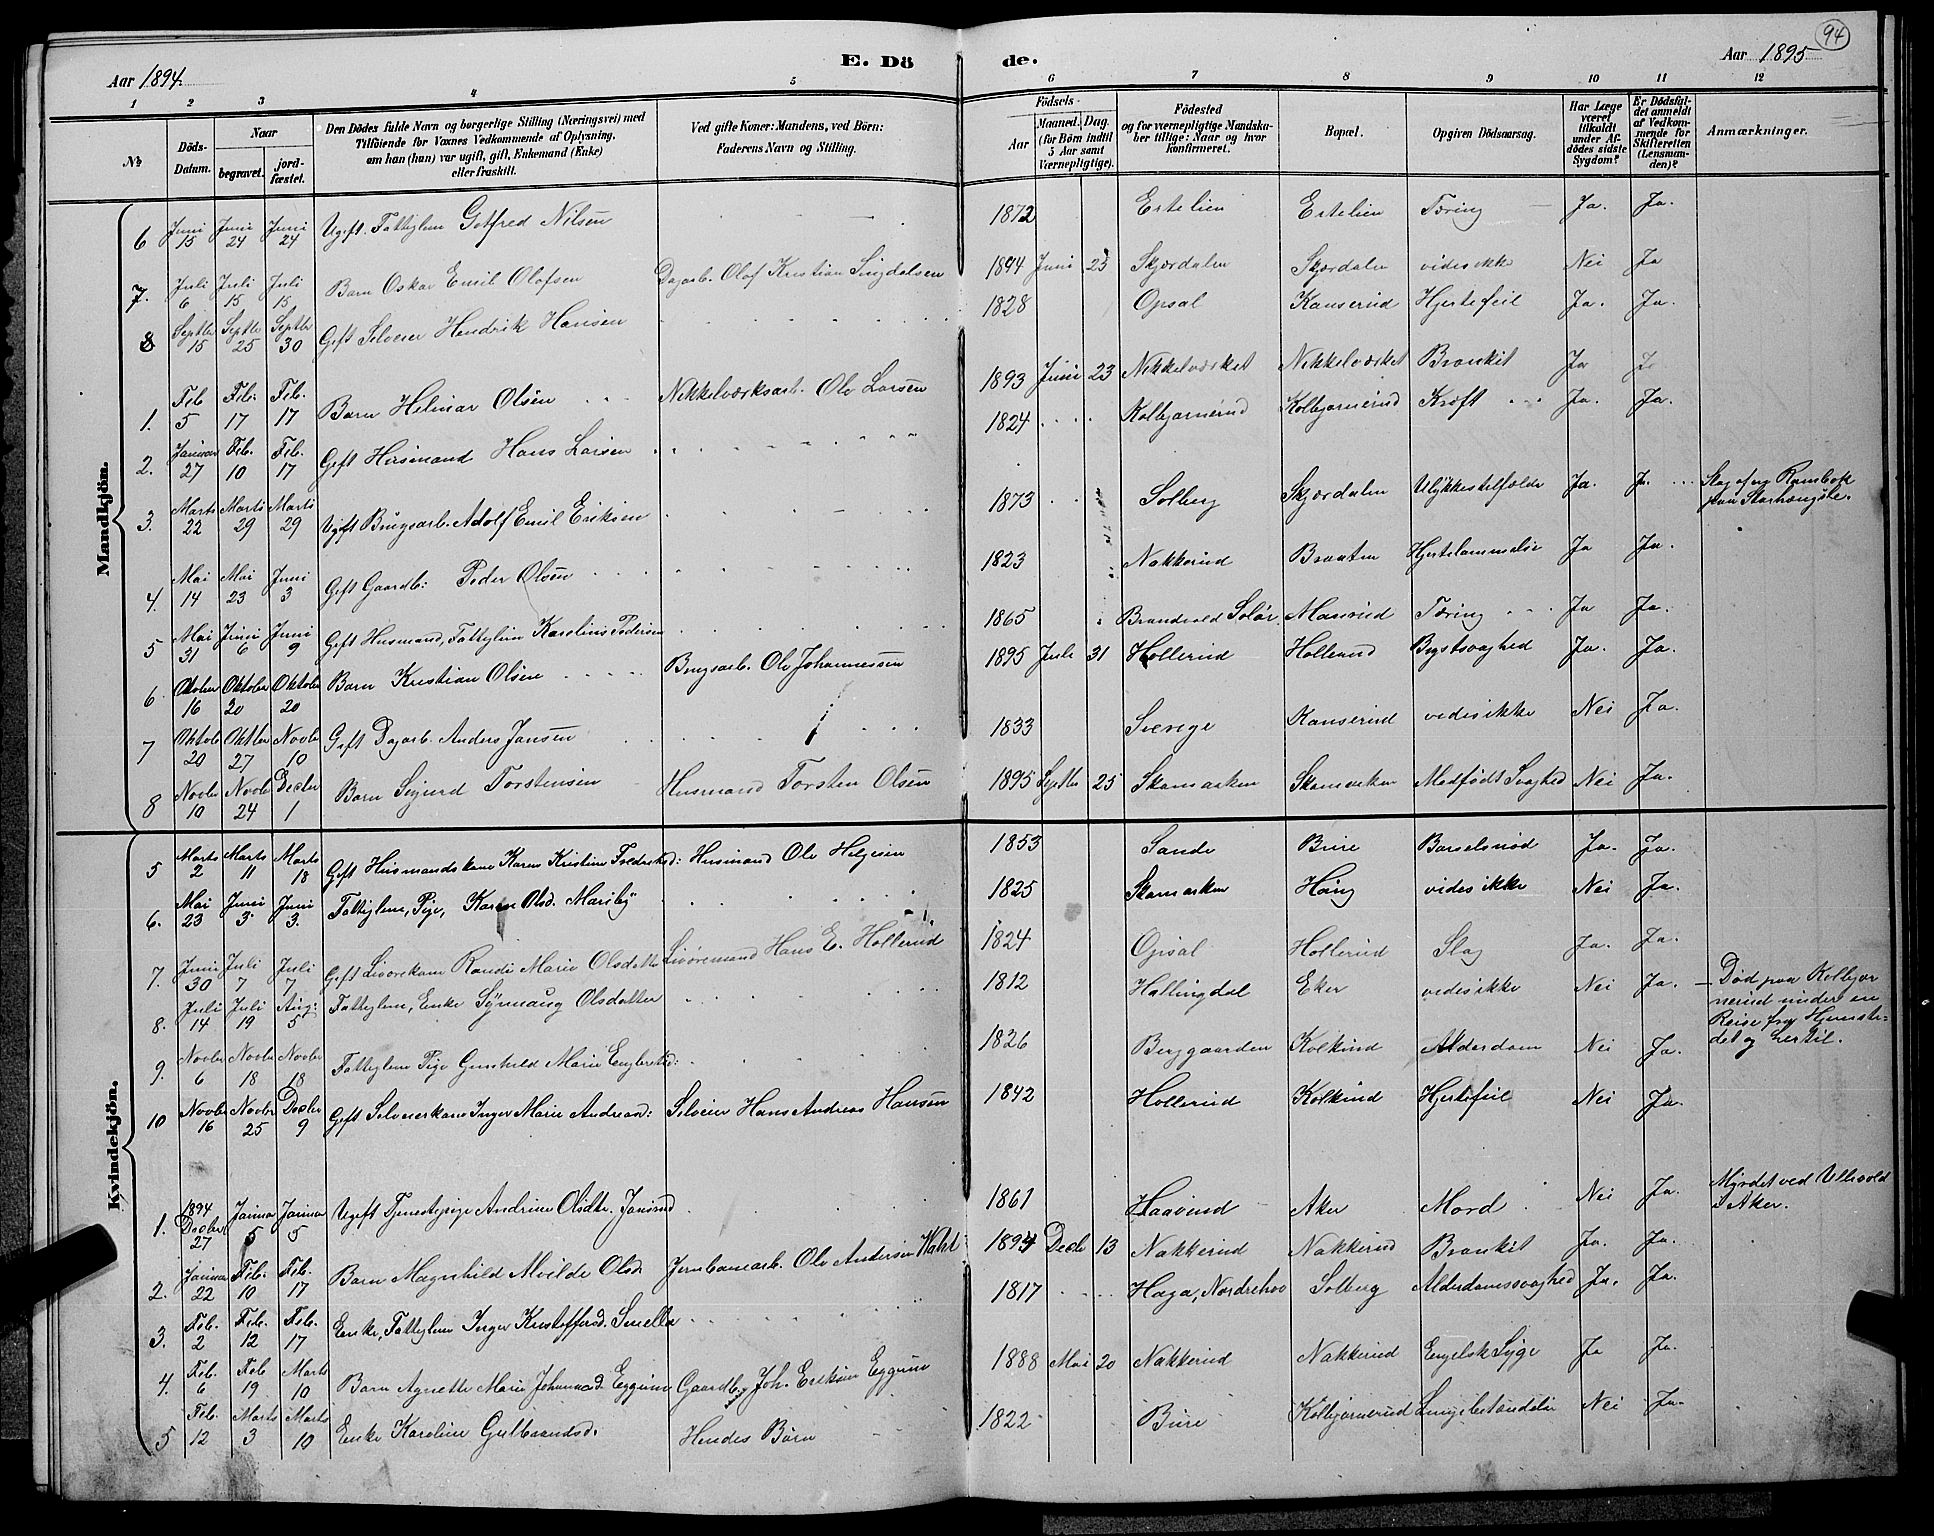 94
Aar 1894. E. Dö de. Aar 1895
1 2 3 4 5 6 7 8 9 10 11 12
No
Döds-Datum.
Naar
begravet.
jordfæstet.
Den Dödes fulde Navn og borgerlige Stilling (Næringsvei) med
Tilföiende for Voxnes Vedkommende af Oplysning,
om han (hun) var ugift, gift, Enkemand (Enke)
eller fraskilt.
Ved gifte Koner: Mandens, ved Börn:
Faderens Navn og Stilling.
Födsels-
Aar
Maaned. Dag
(for Börn indtil
5 Aar samt
Værnepligtige).
Födested
og for værnepligtige Mandskaber tillige: Naar og hvor
konfirmeret.
Bopæl.
Opgiven Dödsaarsag.
Har Læge
været
tilkaldt
under Afdödes sidste
Sygdom?
Er Dödsfaldet anmeldt
af Vedkommende for
Skifteretten
(Lensmanden)?
Anmærkninger.
Mandkjön.
6 Juni 15 Juni 24 Juni 24 Ugift. Fattiglem Gotfred Nilsen 1872 Ertelien Ertelien Tæring Ja. Ja.
7. Juli 6 Juli 15 Juli 15 Barn Oskar Emil Olafsen Dagarb. Olof Kristian Singdalsen 1894 Juni 23 Skjærdalen Skjærdalen vides ikke Nei Ja
8 Septbr 15 Septbr 25 Septbr 30 Gift Selveier Hendrik Hansen 1828 Opsal Kanserud Hjertefeil Ja. Ja.
1. Feb 5 Feb. 17 Feb. 17 Barn Helmar Olsen Nikkelværksarb. Ole Larsen 1893 Juni 23 Nikkelværket Nikkelværket Bronkit Ja
2. Januar 27 Feb. 10 Feb. 17 Gift Husmand Hans Larsen 1824 Kolbjørnerud Kolbjørnerud Kræft Ja. Ja.
3. Marts 22 Marts 29 Marts 29 Ugift Brugsarb. Adolf Emil Eriksen 1873 Solberg Skjærdalen Ulykkestilfælde Ja. Ja. Slag af en
4. Mai 14 Mai 23 Juni 3 Gift Gaardb: Peder Olsen 1823 Nakkerud Braaten Hjertelammelse Ja Ja.
5 Mai 31 Juni 6 Juni 9 Gift Husmand, Fattiglem Karelius Pedersen 1865 Brandvold Solør Manrud Tæring Ja Ja.
6. Oktober 16 Oktober 20 Oktober 20 Barn Kristian Olsen Brugsarb. Ole Johannessen 1895 Juli 31 Hollerud Hollerud Brystsvaghed Ja. Ja.
7 Oktob 20 Oktbr 27 Novbr 10 Gift Dagarb. Anders Jansen 1833 Sverige Kanserud vides ikke Nei Ja.
8 Novbr 10 Novbr 24 Decbr 1 Barn Sigurd Torstensen Husmand Torsten Olsen 1895 Septbr 25 Skamarken Skamarken Medfødt Svaghed Nei Ja.
Kvindekjön.
5 Marts 2 Marts 11 Marts 18 Gift Husmandskone Karen Kristine Fredriksd: Husmand Ole Helgesen 1853 Sande Bure Barselsnød Ja. Ja.
6. Mai 23 Juni 3 Juni 3. Fattiglem, Pige, Karen Olsd. Mariby 1825 Skamarken Haug vides ikke Nei Ja.
7. Juni 30 Juli 7 Juli 7 Gift Livørekone Randi Marie Olsdatter Livøremand Hans E. Hollerud 1824 Opsal Hollerud Slag Ja. Ja.
8. Juli 14 Juli 19 Aug: 5 Fattiglem, Enke Synnøug Olsdatter 1812 Hallingdal Eker vides ikke Nei Ja. Død paa Kolbjørnerud under en
Reise fra Hjemstedet og hertil.
9. Novbr 6 Novbr 18 Novbr 18 Fattiglem Pige Gunhild Marie Engbretsd: 1826 Berggaarden Kolkind Alderdom Nei Ja.
10 Novbr 16 Novbr 25 Decbr 9 Gift Selveierkone Inger Marie Andreasd: Selveier Hans Andreas Hansen 1842 Hollerud Kolkind Hjertefeil Nei Ja.
1. 1894 Decber 27 Januar 5 Januar 5 Ugift Tjenestepige Andrine Olsdtr. Jonsrud 1861 Haavind Aker Mord Nei Ja. Myrdet ved Ullevold
i Aker.
2. Januar 22 Feb. 10 Feb. 17 Barn Magnhild Alvilde Olsd. Jernbanearb. Ole Andersen 1894 Decbr 13 Nakkerud Nakkerud Bronkit Ja. Ja.
3. Feb. 2 Feb. 12 Feb. 17 Enke, Fattiglem Inger Kristoffersd. Smella 1817 Haga, Norderhov Solberg Alderdomssvaghed Ja. Ja.
4. Feb. 6 Feb 19 Marts 10 Barn Agnette Marie Johannesd. Eggum Gaardb. Joh. Eriksen Eggum 1888 Mai 20 Nakkerud Nakkerud Engelsk Syge Ja Ja.
5 Feb. 12 Marts 3 Marts 10 Enke Karoline Gulbrandsd. Hendes Børn 1822 Bure Kolbjørnerud Lungebetændelse Nei Ja.